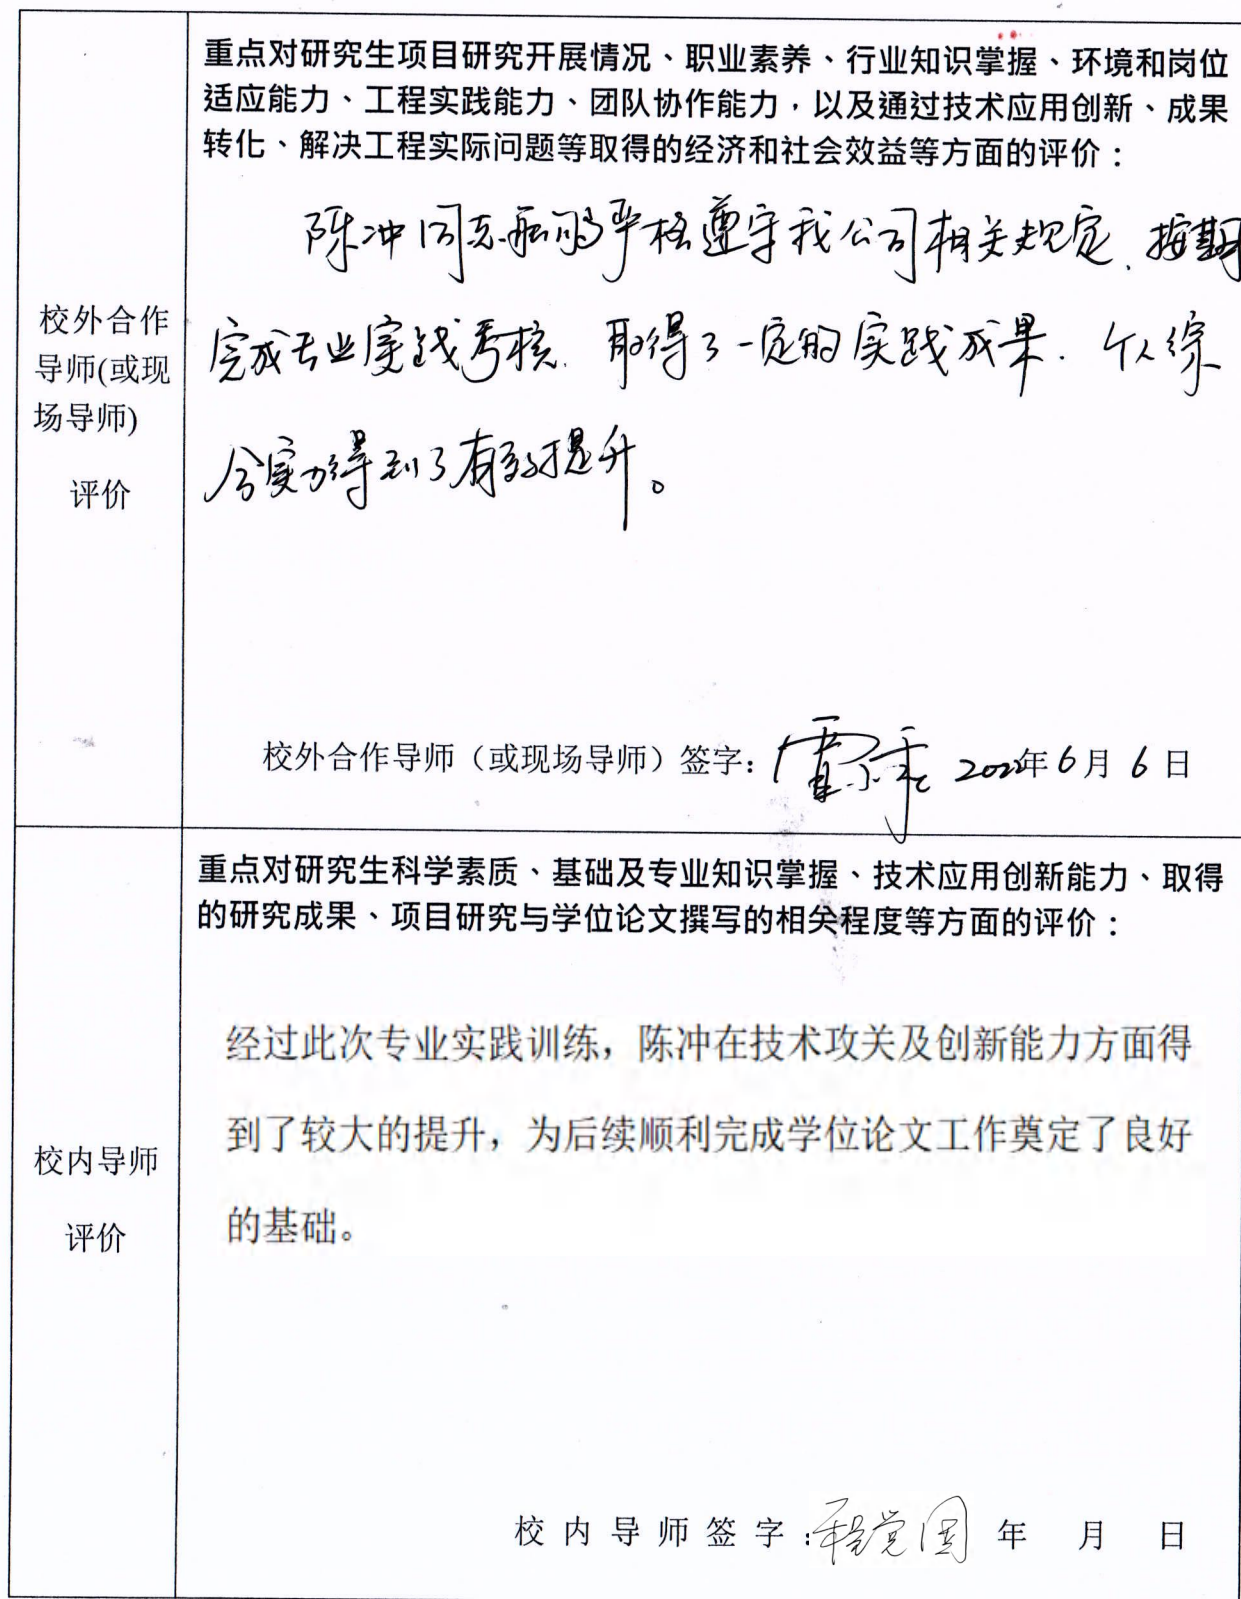 重点对研究生项目研究开展情况、职业素养、行业知识掌握、环境和岗位
适应能力、工程实践能力、团队协作能力，以及通过技术应用创新、成果
转化、解决工程实际问题等取得的经济和社会效益等方面的评价：
陈冲同志能够严格遵守我公司相关规定、按期
完成专业实践考核、取得了一定的实践成果．个人综
合实力得到了有效提升。
校外合作
导师(或现
场导师)
评价
校外合作导师（或现场导师）签字： 2022年6月6日
重点对研究生科学素质、基础及专业知识掌握、技术应用创新能力、取得
的研究成果、项目研究与学位论文撰写的相关程度等方面的评价：
经过此次专业实践训练，陈冲在技术攻关及创新能力方面得
到了较大的提升，为后续顺利完成学位论文工作奠定了良好
的基础。
校内导师
评价
校内导师签字：程党国 年 月 日